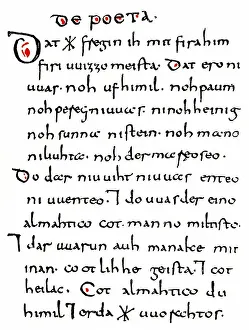 De poeta.
Dat ᛡ fregin ih mit firahim
firi uuizzo meista. Dat ero ni
uuas. noh ufhimil. noh paum
noh pereg niuuas. ninohheinig
noh sunna nistein. noh mano
niliuhta. noh der mareoseo.
Do dar niuuiht niuuas enteo
ni uuenteo. ⁊ do uuas der eino
almahtico cot. manno miltisto.
⁊ dar uuarun auh manake mit
inan. cootlihhe geista. ⁊ cot
heilac. Cot almahtico du
himil ⁊ erda ᛡ